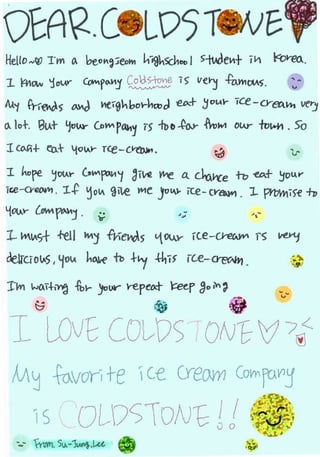 DEAR. COLDSTONE
Hello~ I'm a beongjeom highschool student in Korea.
I know your company Coldstone is very famous.
My friends and neighborhood eat your ice-cream very
a lot. But your company is too far from our town. So
I can't eat your ice-cream.
I hope your company give me a chance to eat your
ice-cream. If you give me your ice-cream. I promise to
your company.
I must tell my friends your ice-cream is very
delicious, you have to thy this ice-cream.
I'm waiting for your repeat keep going
I LOVE COLDSTONE♡
My favorite ice cream company
is COLDSTONE!!
From. Su-Jung, Lee